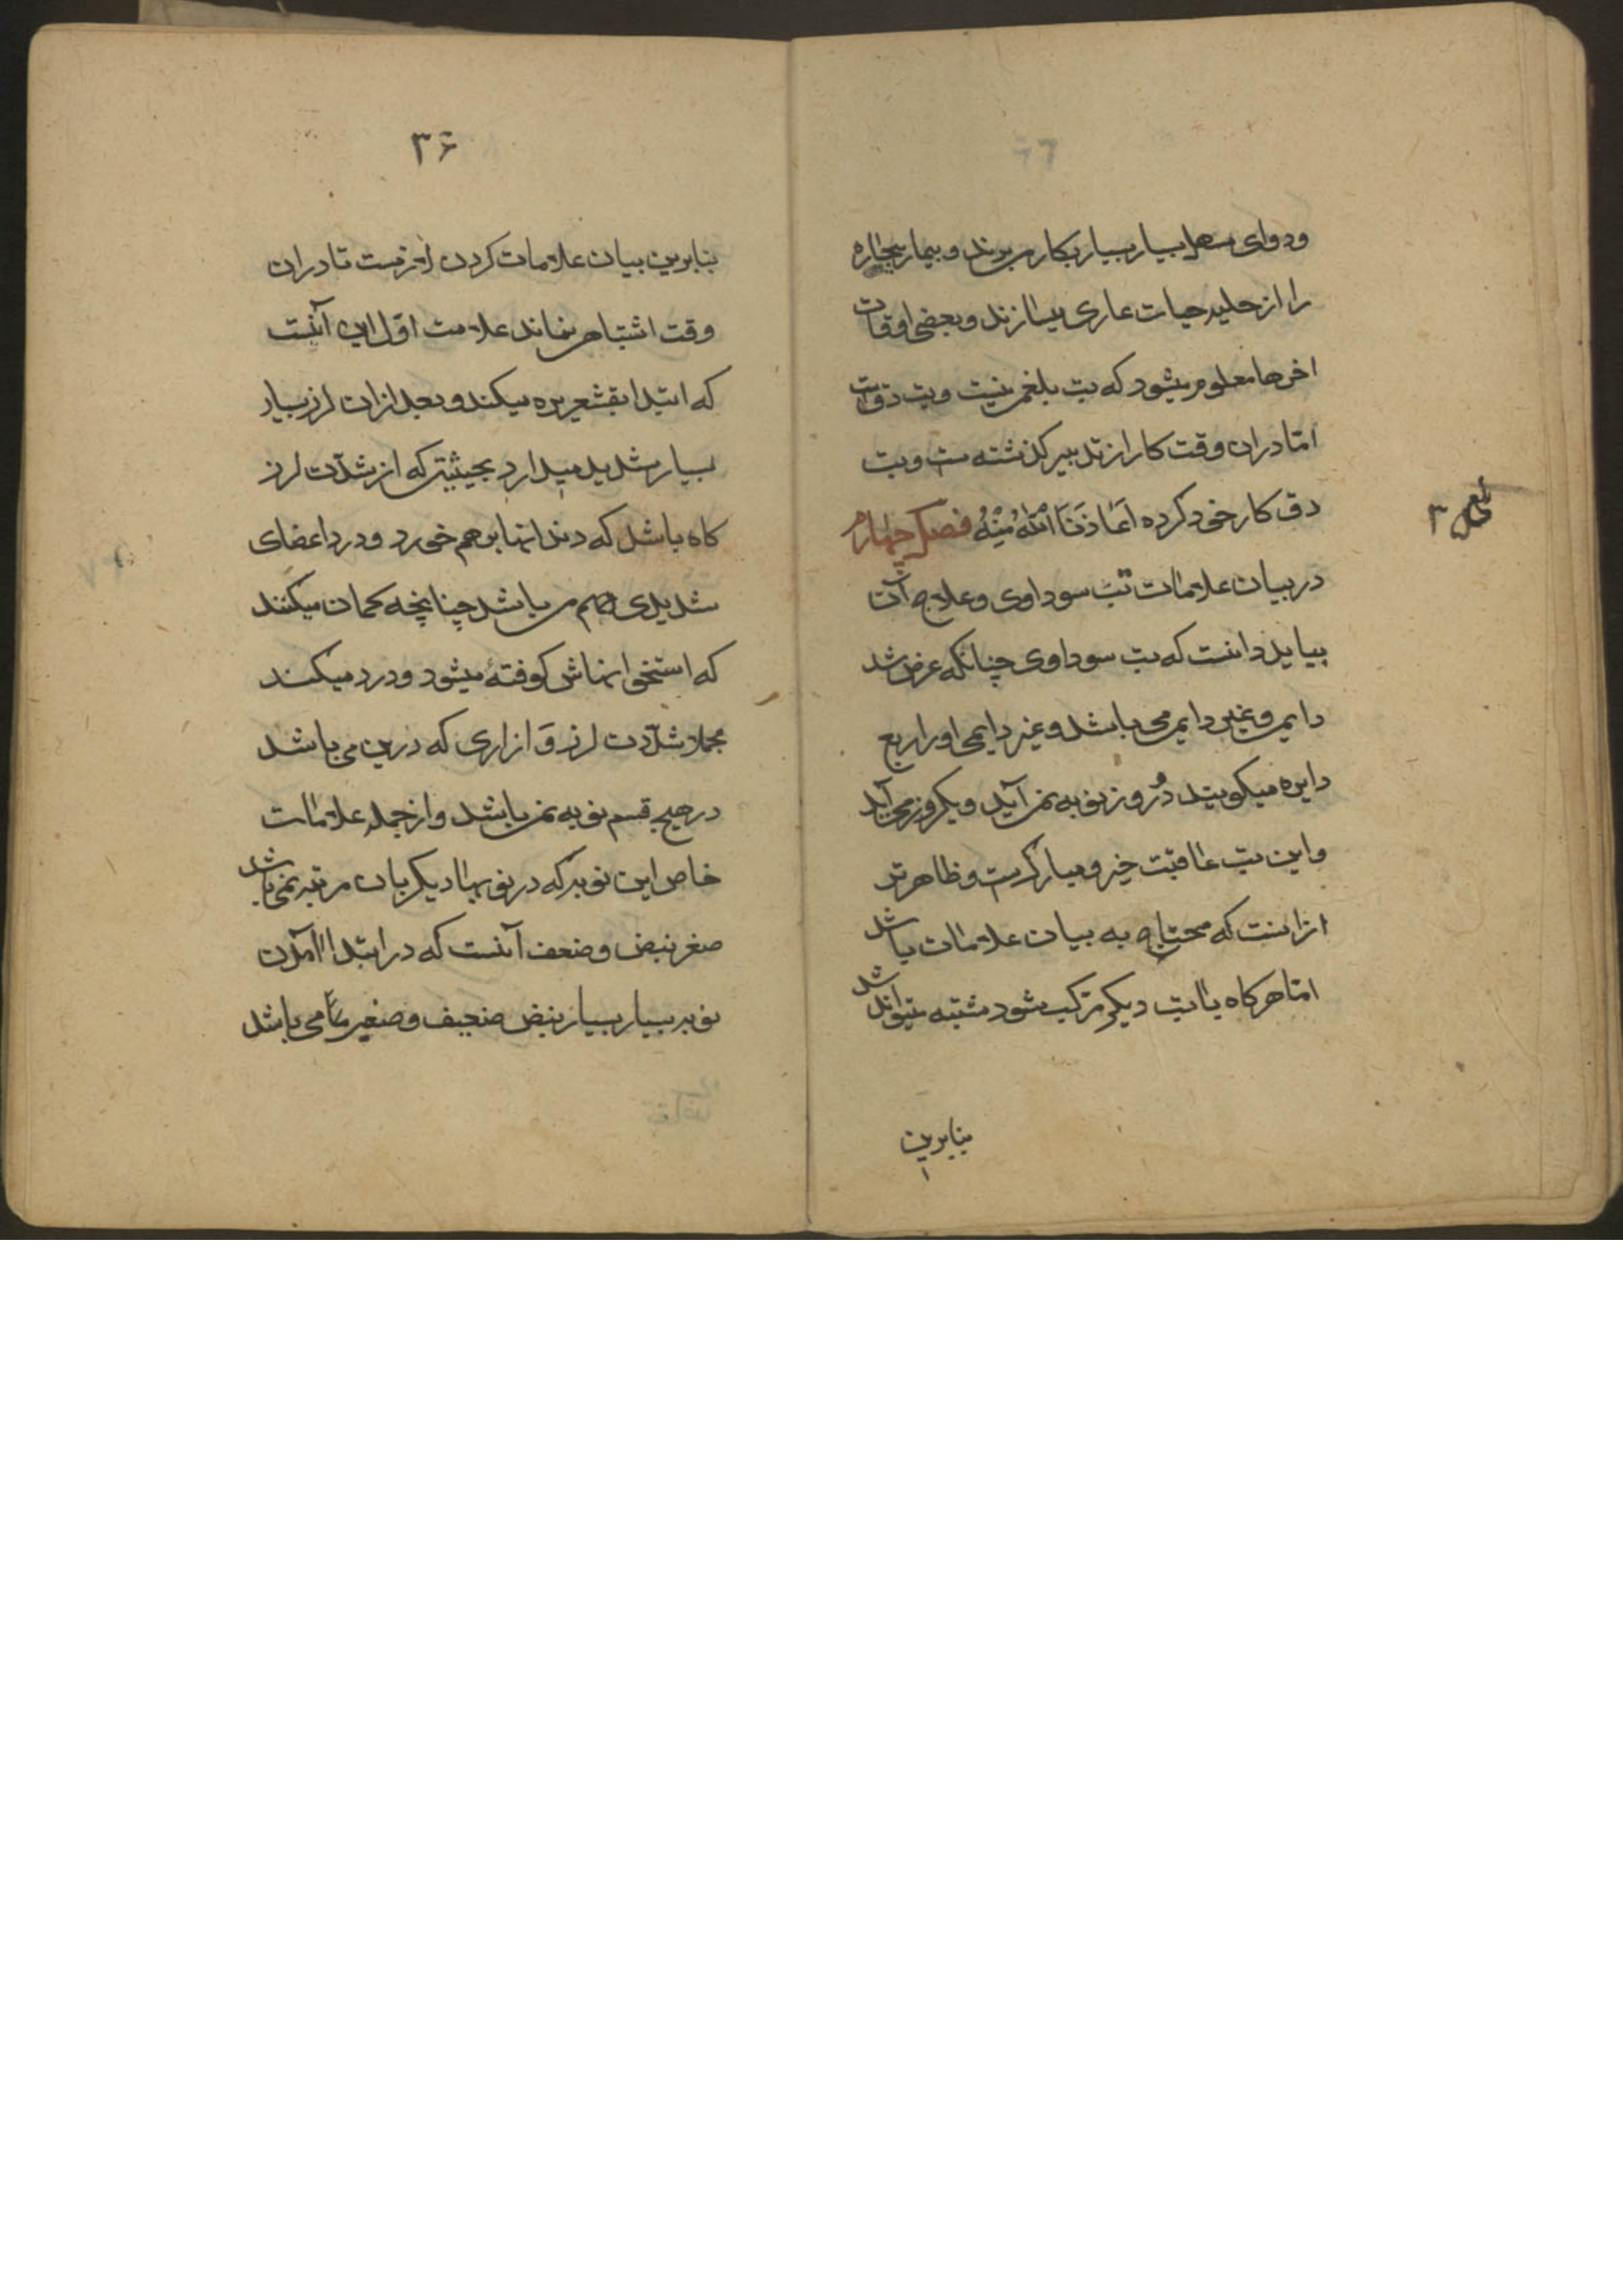 ودوای مسهل بسیار بسیار بکار می برند و بیمار بیچاره
را از حلیه حیات عاری میسازند و بعضی اوقات
اخرها معلوم میشود که تب بلغمی نیست و تب دق است
اما دران وقت کار از تدبیر کذشته است و تب
دق کار خود کرده اَعَاذَنَا اللّٰهُ مِنْهُ فصل چهارم
در بیان علامات تب سوداوی و علاج آن
بباید دانست که تب سوداوی چنانکه عرض شد
دایمی و غیر دایمی می باشد و غیر دایمی او را ربع
دایره میکویند دُو روز نوبه نمی آید و یکروز می آید
و این تب عاقبت خیر و مبارکست و ظاهرتر
ازانست که محتاج به بیان علامات باشد
اما هرکاه با تب دیکر مرکب شود مشتبه میتواند شد
بنابرین
۳۶
بنابرین بیان علامات کردن لازمست تا دران
وقت اشتباهی نماند علامت اول این آنست
که ابتدا بقشعریره میکند و بعد ازان لرز بسیار
بسیار شدید میدارد بحیثیتی که از شدّت لرز
کاه باشد که دندانها بر هم خورد و درد اعضای
شدیدی هم می باشد چنانچه کمان میکنند
که استخوانهاش کوفته میشود و درد میکند
مجملا شدّت لرز و ازاری که درین می باشد
در هیچ قسم نوبه نمی باشد و از جمله علامات
خاص این نوبه که در نوبهای دیکر بان مرتبه نمی باشد
صغر نبض و ضعف آنست که در ابتداء آمدن
نوبه بسیار بسیار نبض ضعیف و صغیر می باشد